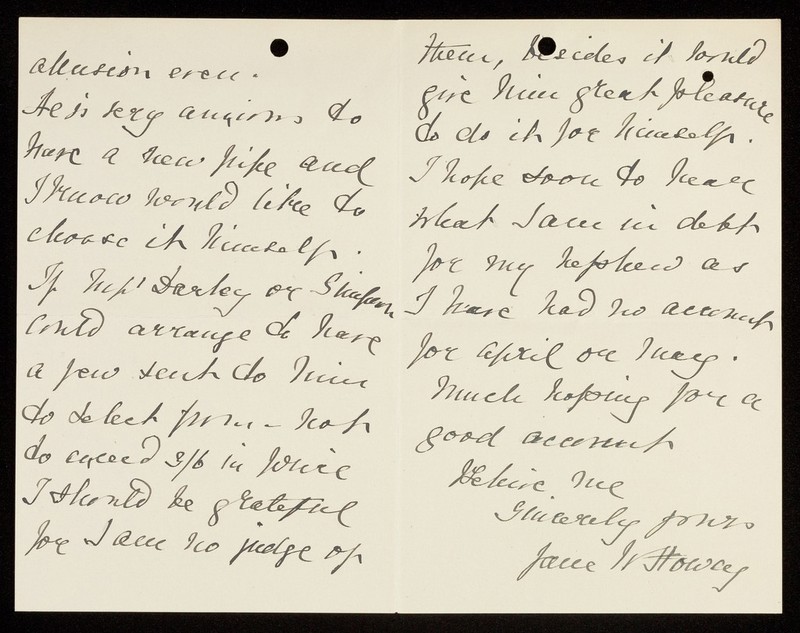 allusion even.
He is very anxious to
have a new pipe and
I know would like to
choose it himself.
If Mrs Darley or Simpson
could arrange to have
a few sent to him
to select from – not
to exceed 3/6 in price
I should be grateful
for I am no judge of
them, besides it would
give him great pleasure
to do it for himself.
I hope soon to hear
what I am in debt
for my nephew as
I have had no account
for April or May.
Much hoping for a
good account
Believe me
Sincerely yours
Jane W